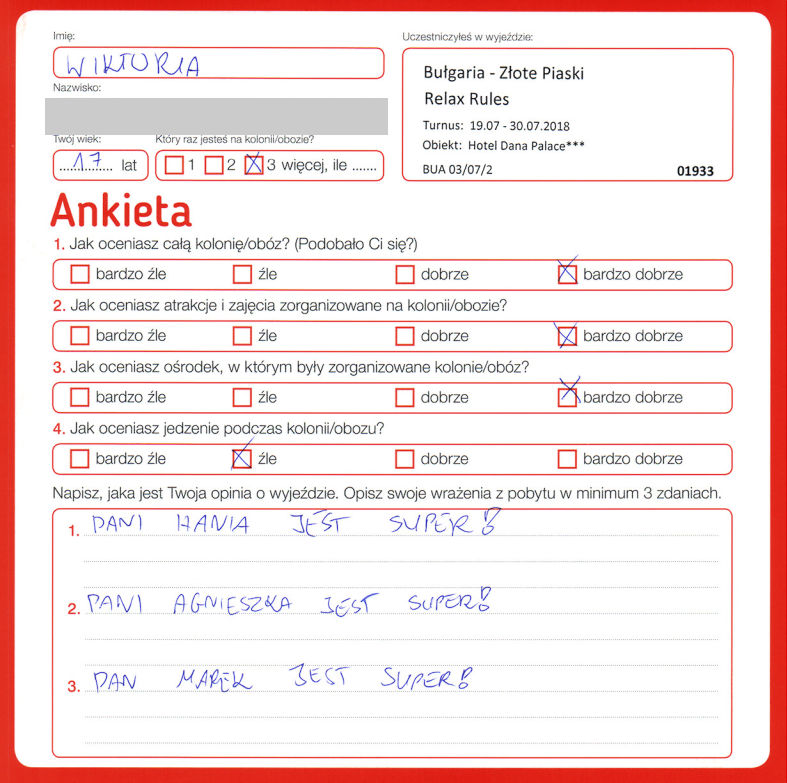 Imię:
WIKTORIA
Uczestniczyłeś w wyjeździe:
Bułgaria - Złote Piaski
Relax Rules
Turnus: 19.07 - 30.07.2018
Obiekt: Hotel Dana Palace***
BUA 03/07/2
01933
Nazwisko:
Twój wiek:
Który raz jesteś na kolonii/obozie?
17 lat
1 2 3 więcej, ile .......
Ankieta
1. Jak oceniasz całą kolonię/obóz? (Podobało Ci się?)
bardzo źle źle dobrze bardzo dobrze
2. Jak oceniasz atrakcje i zajęcia zorganizowane na kolonii/obozie?
bardzo źle źle dobrze bardzo dobrze
3. Jak oceniasz ośrodek, w którym były zorganizowane kolonie/obóz?
bardzo źle źle dobrze bardzo dobrze
4. Jak oceniasz jedzenie podczas kolonii/obozu?
bardzo źle źle dobrze bardzo dobrze
Napisz, jaka jest Twoja opinia o wyjeździe. Opisz swoje wrażenia z pobytu w minimum 3 zdaniach.
1. PANI HANIA JEST SUPER!
2. PANI AGNIESZKA JEST SUPER!
3. PAN MAREK JEST SUPER!